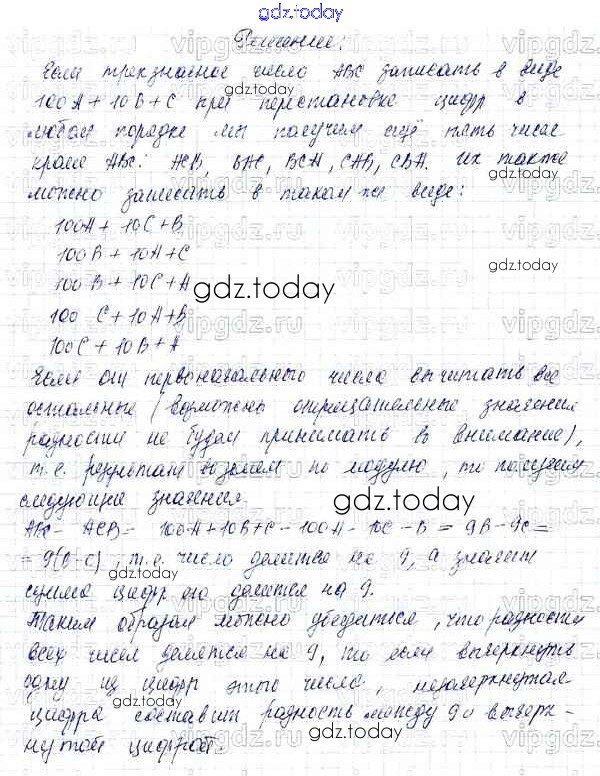 gdz.today
Решение:
Если трехзначное число ABC записать в виде
100A + 10B + C при перестановке цифр в
любом порядке мы получим ещё пять чисел
кроме ABC: ACB, BAC, BCA, CAB, CBA. Их также
можно записать в таком же виде:
100A + 10C + B
100B + 10A + C
100B + 10C + A
100 C + 10A + B
100C + 10B + A
Если от первоначального числа вычитать все
остальные (возможные отрицательные значения
разности не будем принимать во внимание),
т.е. результат возьмем по модулю, то получим
следующие значения.
ABC - ACB = 100A + 10B + C - 100A - 10C - B = 9B - 9C =
= 9(B - C), т.е. число делится на 9, а значит
сумма цифр его делится на 9.
Таким образом можно убедиться, что разности
всех чисел делятся на 9, то если вычеркнуть
одну из цифр этого числа, незачеркнутая
цифра составит разность между 9 и вычерк-
нутой цифрой.
gdz.today
gdz.today
gdz.today
gdz.today
gdz.today
gdz.today
gdz.today
gdz.today
vipgdz.ru